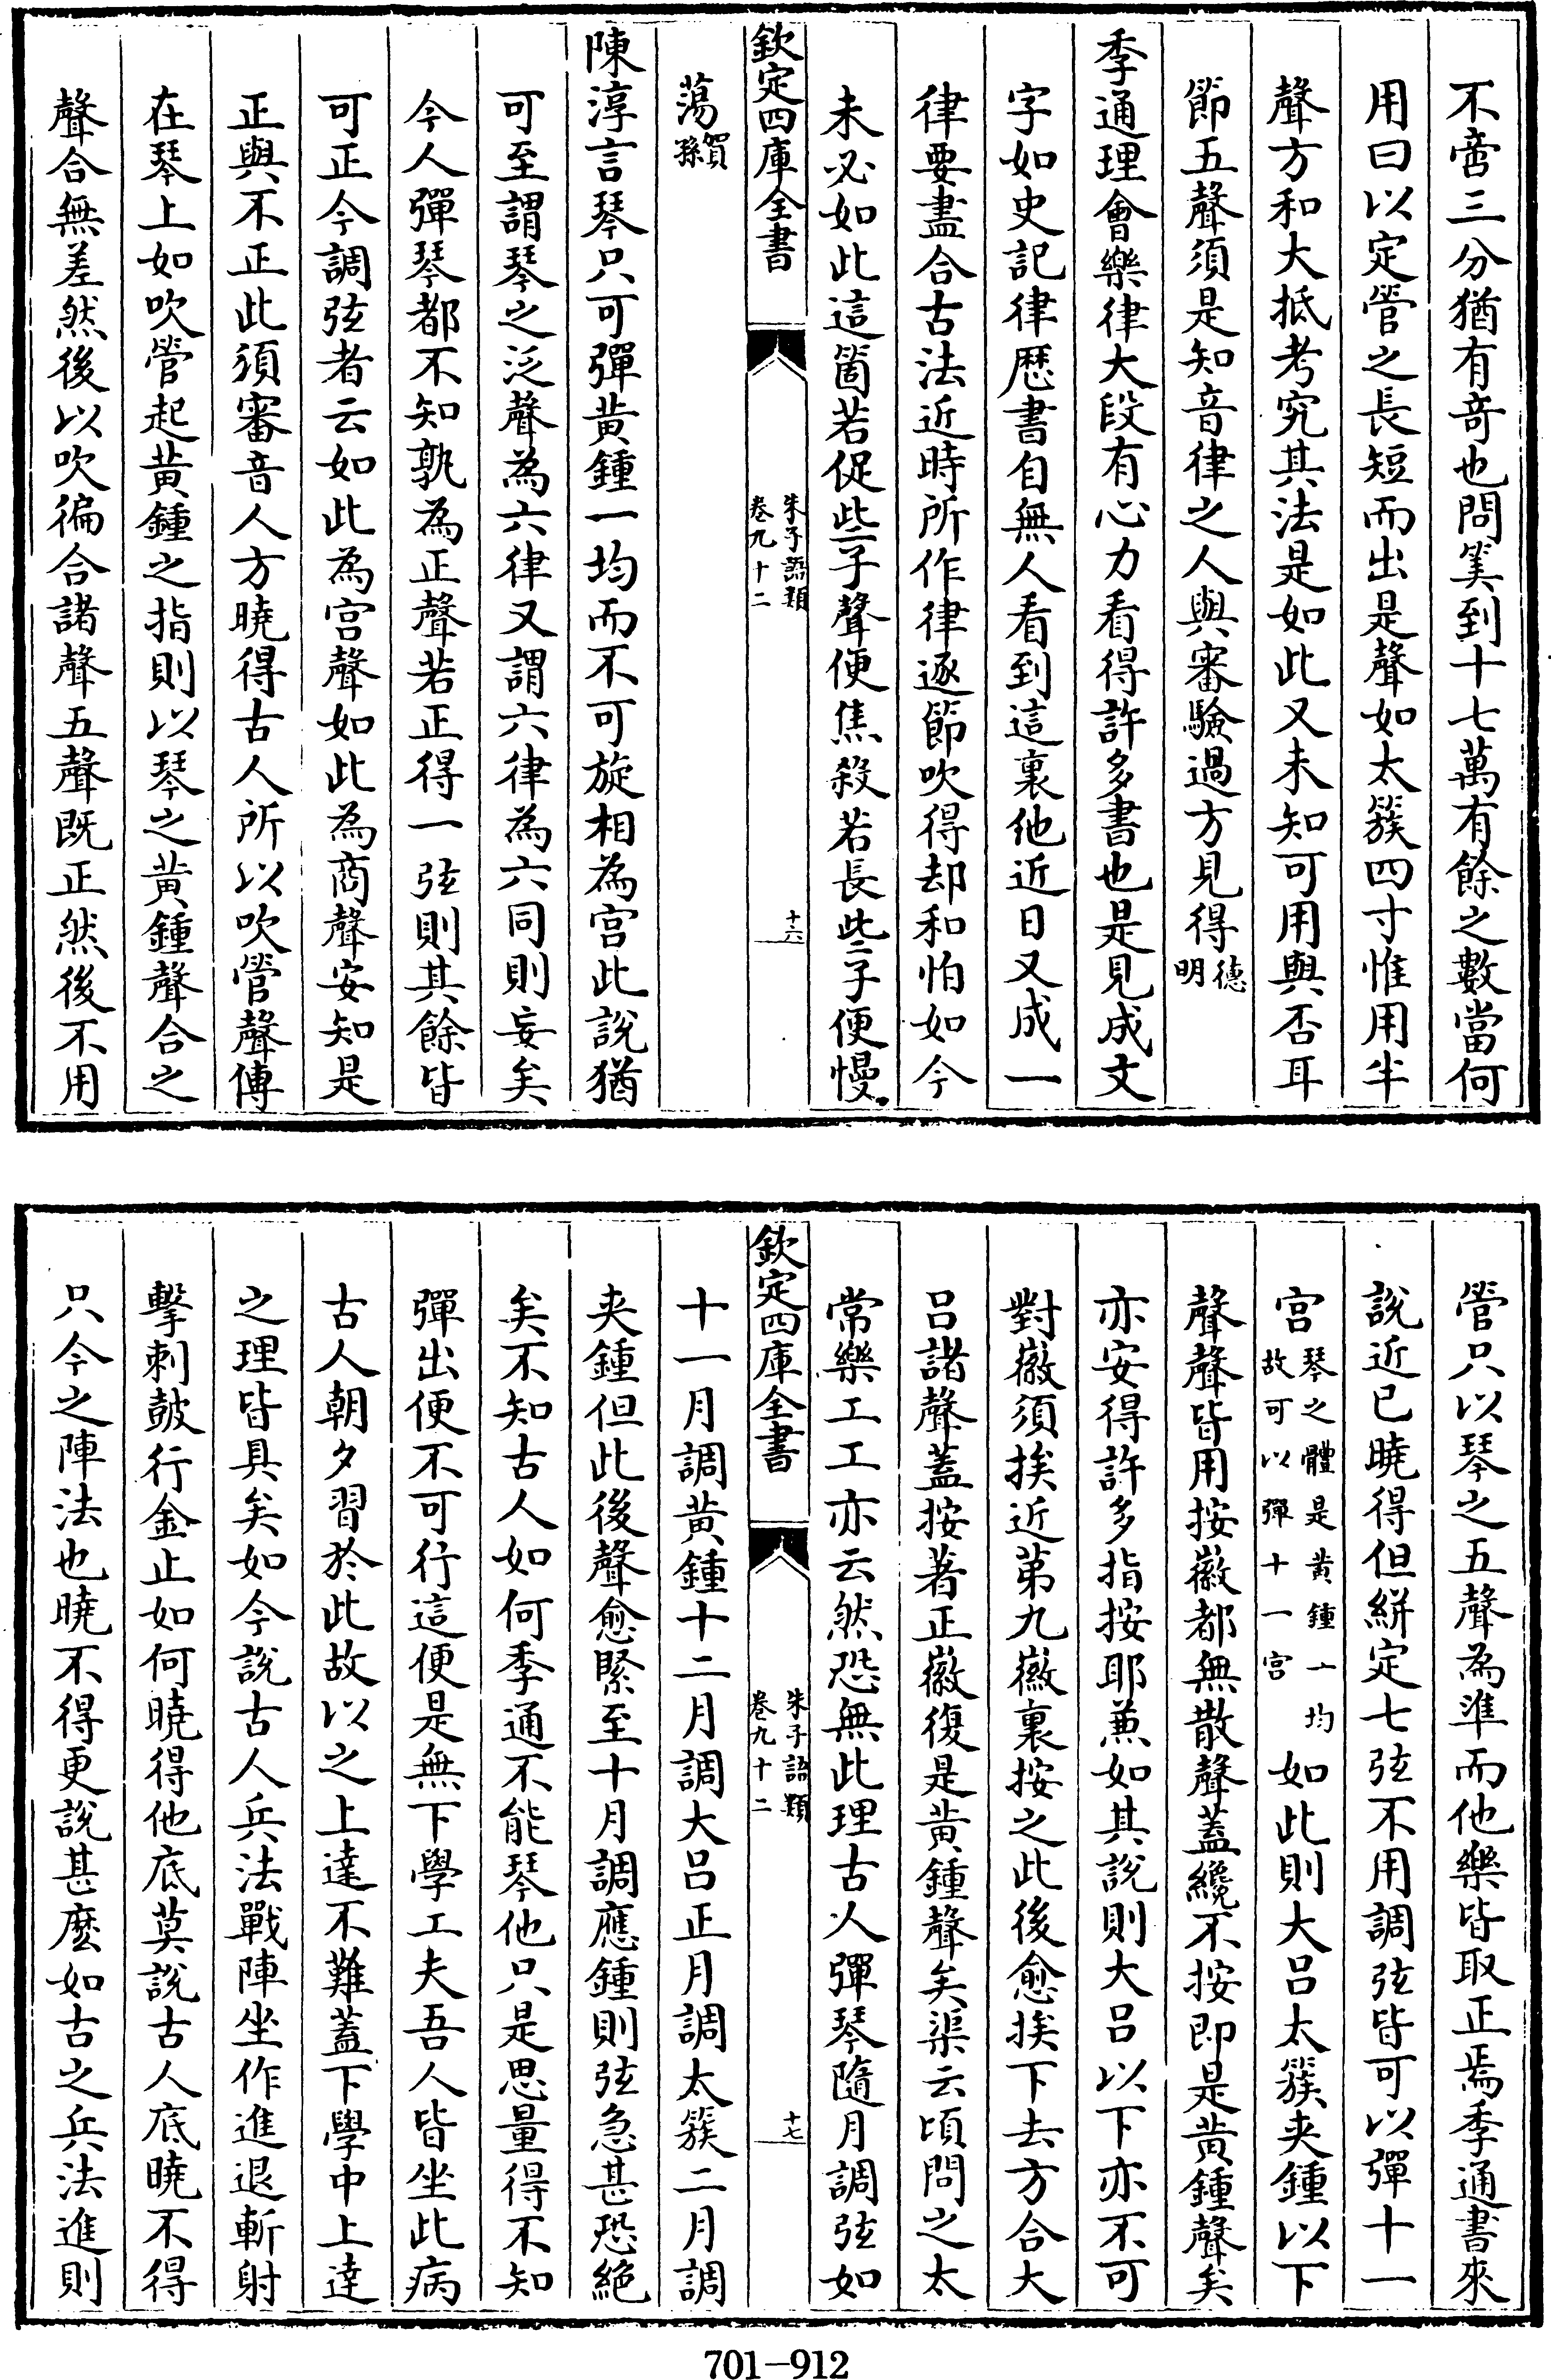 不啻三分猶有奇也問筭到十七萬有餘之數當何
用曰以定管之長短而出是聲如太簇四寸惟用半
聲方和大抵考究其法是如此又未知可用與否耳
節五聲須是知音律之人與審驗過方見得德明
季通理會樂律大段有心力看得許多書也是見成文
字如史記律歷書自無人看到這裏他近日又成一
律要盡合古法近時所作律逐節吹得却和怕如今
未必如此這箇若促些子聲便焦殺若長些子便慢
欽定四庫全書
朱子語類
卷九十二
十六
蕩賀孫
陳淳言琴只可彈黃鍾一均而不可旋相為宮此說猶
可至謂琴之泛聲為六律又謂六律為六同則妄矣
今人彈琴都不知孰為正聲若正得一弦則其餘皆
可正今調弦者云如此為宮聲如此為商聲安知是
正與不正此須審音人方曉得古人所以吹管聲傳
在琴上如吹管起黃鍾之指則以琴之黃鍾聲合之
聲合無差然後以吹徧合諸聲五聲既正然後不用
管只以琴之五聲為準而他樂皆取正焉季通書來
說近已曉得但絣定七弦不用調弦皆可以彈十一
宮琴之體是黃鍾一均故可以彈十一宮如此則大呂太簇夾鍾以下
聲聲皆用按徽都無散聲蓋纔不按即是黃鍾聲矣
亦安得許多指按耶兼如其說則大呂以下亦不可
對徽須挨近第九徽裏按之此後愈挨下去方合大
呂諸聲蓋按著正徽復是黃鍾聲矣渠云頃問之太
常樂工工亦云然恐無此理古人彈琴隨月調弦如
欽定四庫全書
朱子語類
卷九十二
十七
十一月調黃鍾十二月調大呂正月調太簇二月調
夾鍾但此後聲愈緊至十月調應鍾則弦急甚恐絕
矣不知古人如何季通不能琴他只是思量得不知
彈出便不可行這便是無下學工夫吾人皆坐此病
古人朝夕習於此故以之上達不難蓋下學中上達
之理皆具矣如今說古人兵法戰陣坐作進退斬射
擊刺鼓行金止如何曉得他底莫說古人底曉不得
只今之陣法也曉不得更說甚麽如古之兵法進則
701-912